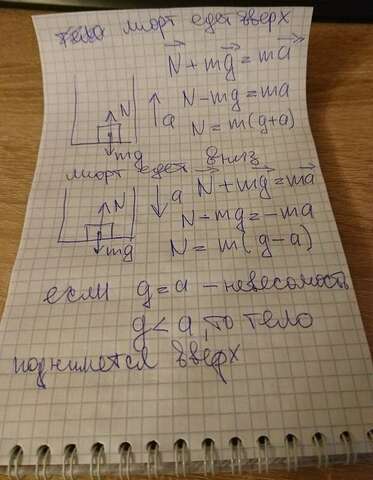 тело лифт едет вверх
N + mg = ma
N
a
N - mg = ma
mg
N = m(g+a)
лифт едет вниз
N
a
N + mg = ma
N - mg = -ma
mg
N = m(g-a)
если g = a - невесомость
g < a, то тело
поднимется вверх